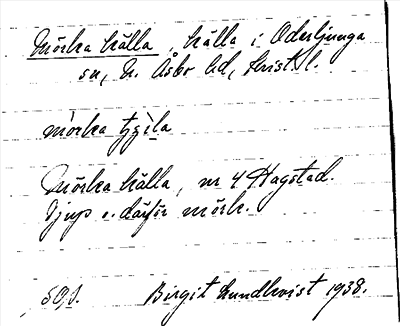 Mörka källa, källa i Oderljunga
sn, N. Åsbo hd, Krist. l.
mörka tɟɛla
Mörka källa, nr 4 Hagstad.
Djup o. därför mörk.
SOI. Birgit Lundkvist 1938.